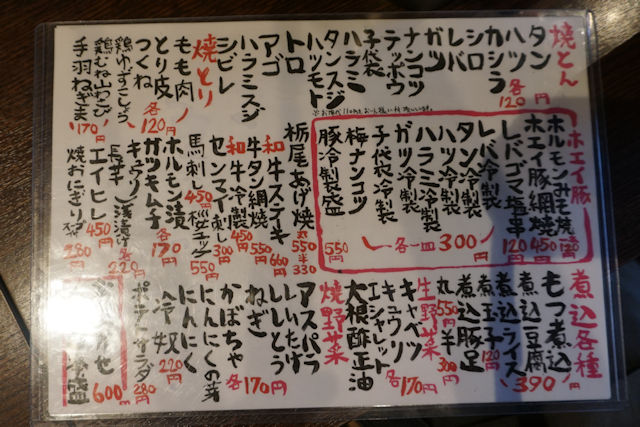 焼とん
タン
ハツ
カシラ
各120円
シロ
レバ
ガツ
ナンコツ
テッポウ
子袋
ハラミ
タンスジ
ハツモト
トロ
アゴ
ハラミスジ
シビレ
焼とり
もも肉
とり皮
つくね
各120円
鶏ゆずこしょう
鶏むね山わさび
手羽ねぎま
170円
ホエイ豚
ホルモンみそ焼
ホエイ豚網焼
450円
レバゴマ塩串
120円
レバ冷製
タン冷製
ハツ冷製
ハラミ冷製
ガツ冷製
子袋冷製
各一皿300円
梅ナンコツ
豚冷製盛
550円
栃尾あげ焼
丸550
半330
和牛ステーキ
660円
牛タン網焼
550円
和牛冷製
450円
センマイ刺し
300円
馬刺し桜ユッケ
450円
550円
ホルモン漬
ガツキムチ
各170円
キュウリ浅漬け
長芋
各220円
エイヒレ
450円
焼おにぎり
280円
煮込各種
もつ煮込
煮込豆腐
煮込ライス
390円
煮玉子
120円
煮込豚足
丸550円
半300円
生野菜
キャベツ
キュウリ
エシャレット
各170円
大根酢正油
焼野菜
アスパラ
しいたけ
ししとう
ねぎ
かぼちゃ
にんにくの芽
にんにく
各170円
冷奴
220円
ポテトサラダ
280円
600円